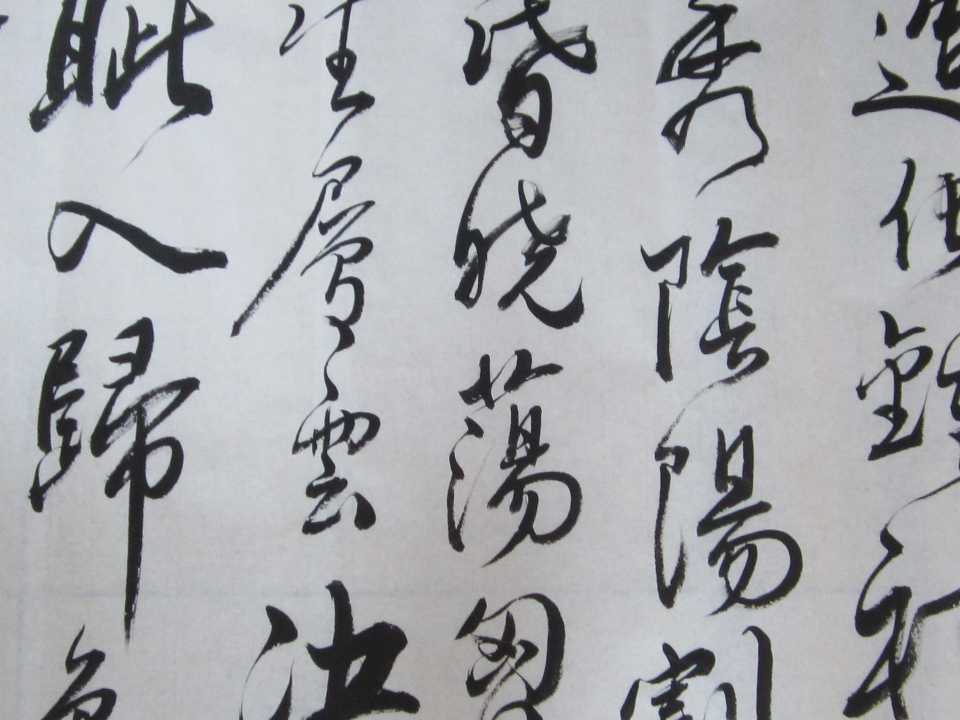 造化鍾神
秀陰陽割
昏曉蕩胸
生層雲決
眥入歸鳥